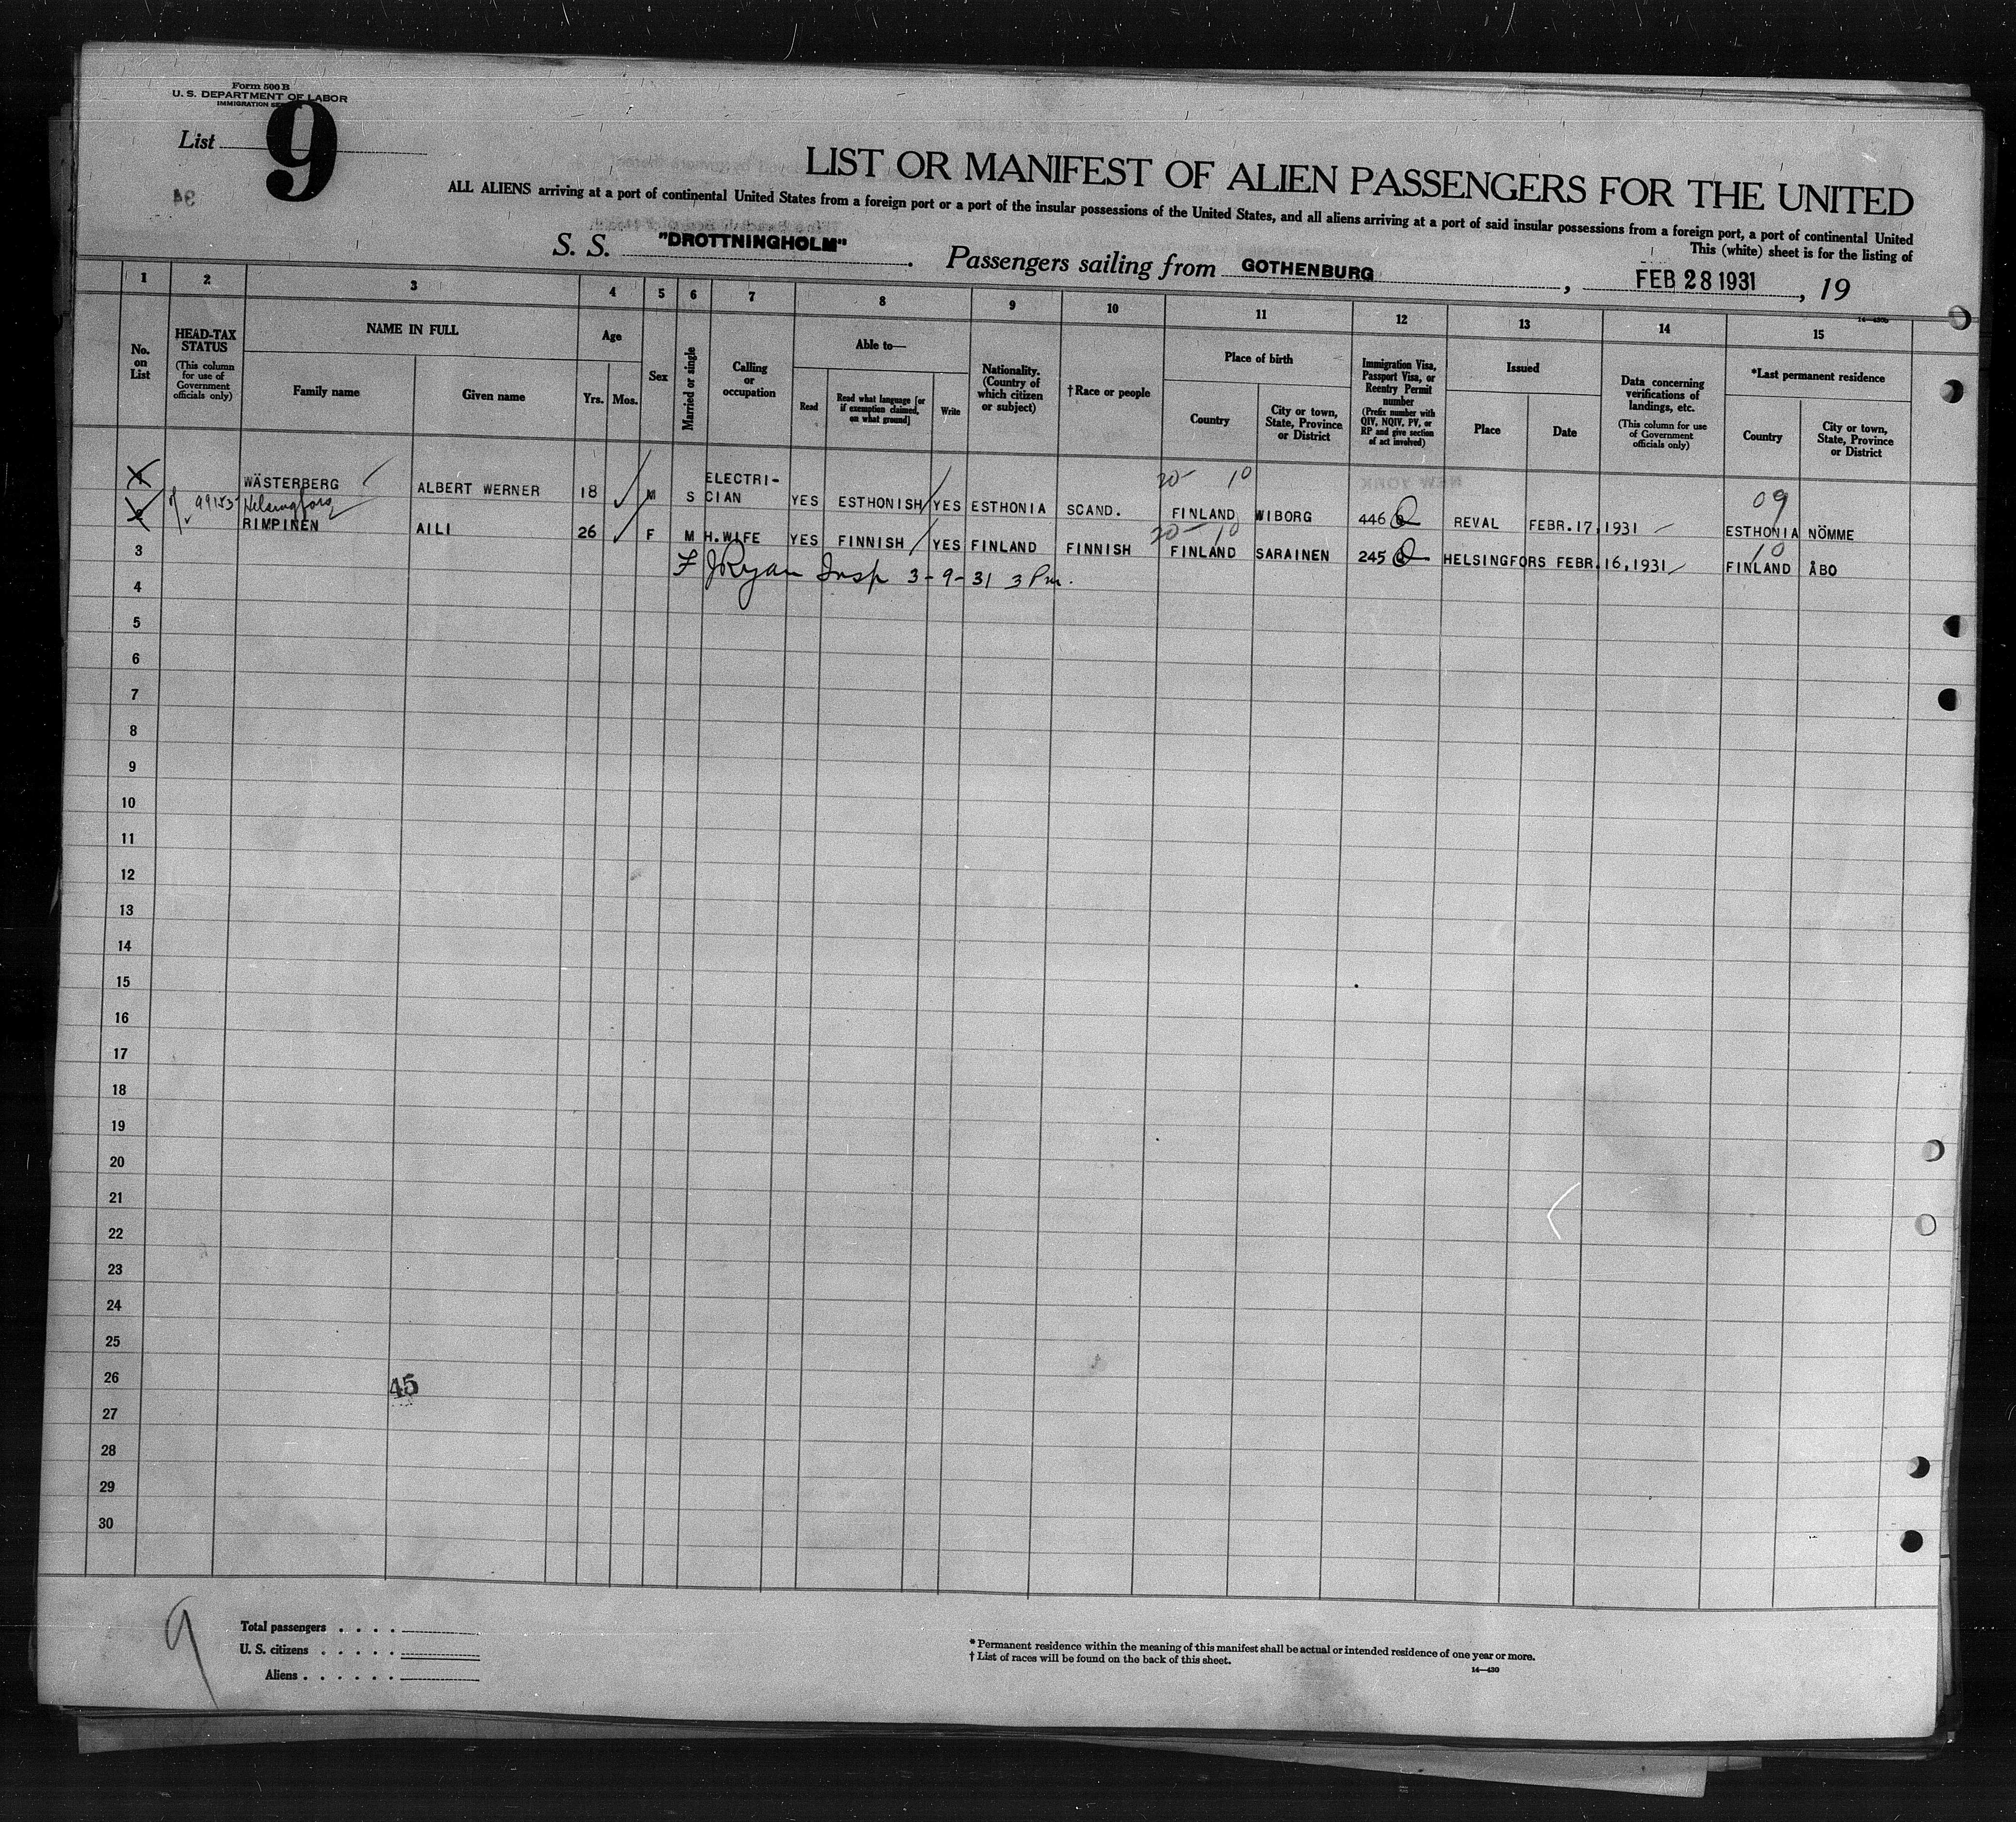 Form 500 B
U. S. DEPARTMENT OF LABOR
IMMIGRATION
List 9
LIST OR MANIFEST OF ALIEN PASSENGERS FOR THE UNITED
ALL ALIENS arriving at a port of continental United States from a foreign port or a port of the insular possessions of the United States, and all aliens arriving at a port of said insular possessions from a foreign port, a port of continental United
This (white) sheet is for the listing of
S. S. "DROTTNINGHOLM". Passengers sailing from GOTHENBURG, FEB 28 1931, 19
1 2 3 4 5 6 7 8 9 10 11 12 13 14 15
No. on List
HEAD-TAX STATUS
(This column for use of Government officials only)
NAME IN FULL
Family name
Given name
Age
Yrs. Mos.
Sex
Married or single
Calling or occupation
Able to—
Read
Read what language [or if exemption claimed, on what ground]
Write
Nationality. (Country of which citizen or subject)
† Race or people
Place of birth
Country
City or town, State, Province or District
Immigration Visa, Passport Visa, or Reentry Permit number
(Prefix number with QIV, NQIV, PV, or RP and give section of act involved)
Issued
Place
Date
Data concerning verifications of landings, etc.
(This column for use of Government officials only)
*Last permanent residence
Country
City or town, State, Province or District
20- 10 09
1 WÄSTERBERG ALBERT WERNER 18 M S ELECTRI-CIAN YES ESTHONISH YES ESTHONIA SCAND. FINLAND WIBORG 446 REVAL FEBR.17,1931 ESTHONIA NÖMME
Helsingfors
20- 10 10
2 RIMPINEN AILI 26 F M H.WIFE YES FINNISH YES FINLAND FINNISH FINLAND SARAINEN 245 HELSINGFORS FEBR.16,1931 FINLAND ÅBO
3 F J Ryan Insp 3-9-31 3 Pm.
4
5
6
7
8
9
10
11
12
13
14
15
16
17
18
19
20
21
22
23
24
25
26 45
27
28
29
30
9
Total passengers
U. S. citizens
Aliens
* Permanent residence within the meaning of this manifest shall be actual or intended residence of one year or more.
† List of races will be found on the back of this sheet.
14—430